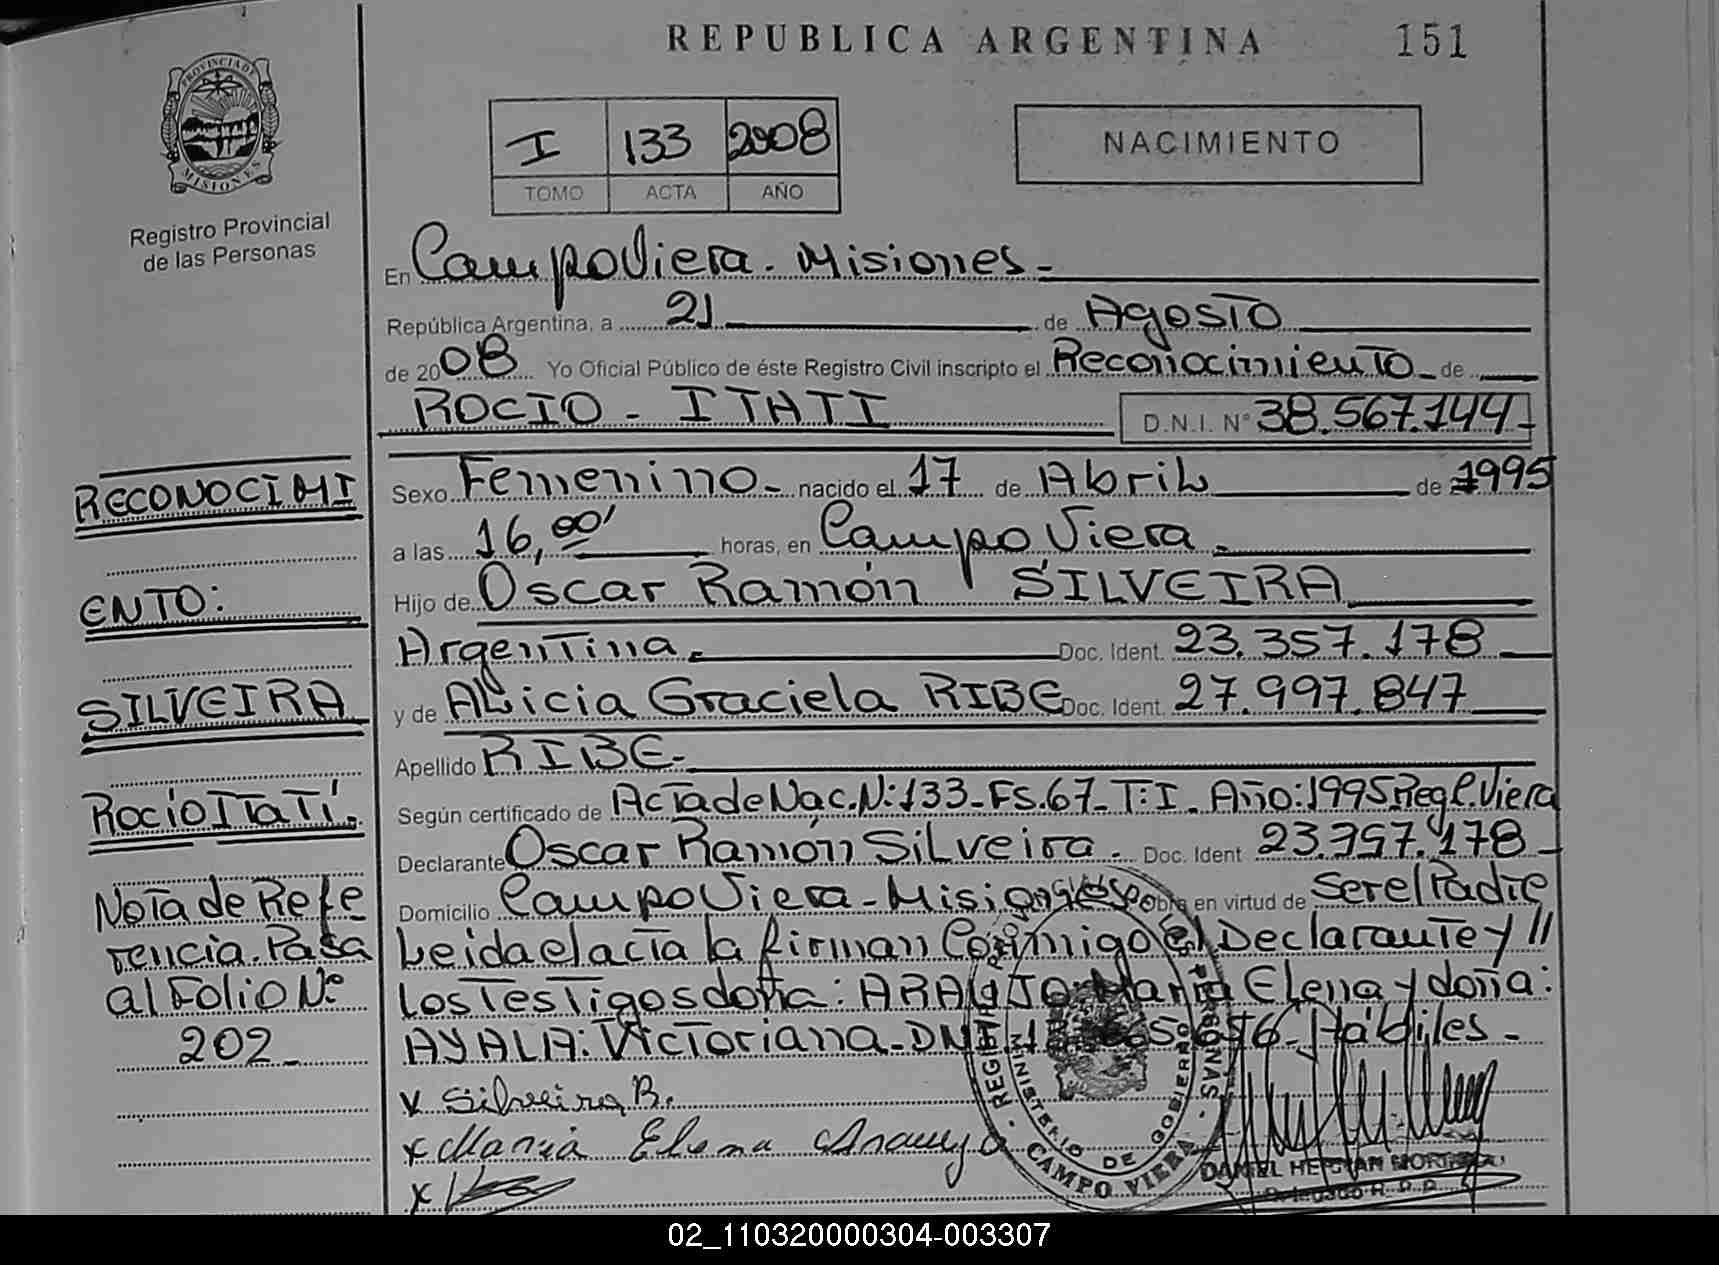 REPUBLICA ARGENTINA 151
PROVINCIA DE MISIONES
Registro Provincial
de las Personas
I 133 2008
TOMO ACTA AÑO
NACIMIENTO
En Campo Viera. Misiones-
República Argentina, a 21 de Agosto
de 2008 Yo Oficial Público de éste Registro Civil inscripto el Reconocimiento de
ROCIO - ITATI D.N.I. Nº 38.567.144-
Sexo Femenino- nacido el 17 de Abril de 1995
a las 16,00' horas, en Campo Viera.
Hijo de Oscar Ramón SILVEIRA
Argentina. Doc. Ident. 23.357.178
y de Alicia Graciela RIBE Doc. Ident. 27.997.847
Apellido RIBE-
Según certificado de Acta de Nac. N:133-Fs.67-T:I. Año:1995 Reg C.Viera
Declarante Oscar Ramón Silveira. Doc. Ident 23.357.178-
Domicilio Campo Viera-Misiones Obra en virtud de Ser el Padre
Leida el acta la firman Conmigo el Declarante y //
los Testigos doña: ARAUJO María Elena y doña:
AYALA: Victoriana-DNI Hábiles-
x Silveira B.
x Maria Elena Araujo
x
RECONOCIMI
ENTO:
SILVEIRA
Rocio Itatí.
Nota de Refe
rencia. Pasa
al Folio Nº
202-
MINISTERIO DE GOBIERNO
CAMPO VIERA
DANIEL HERNAN
Delegado R. P. P.
02_110320000304-003307